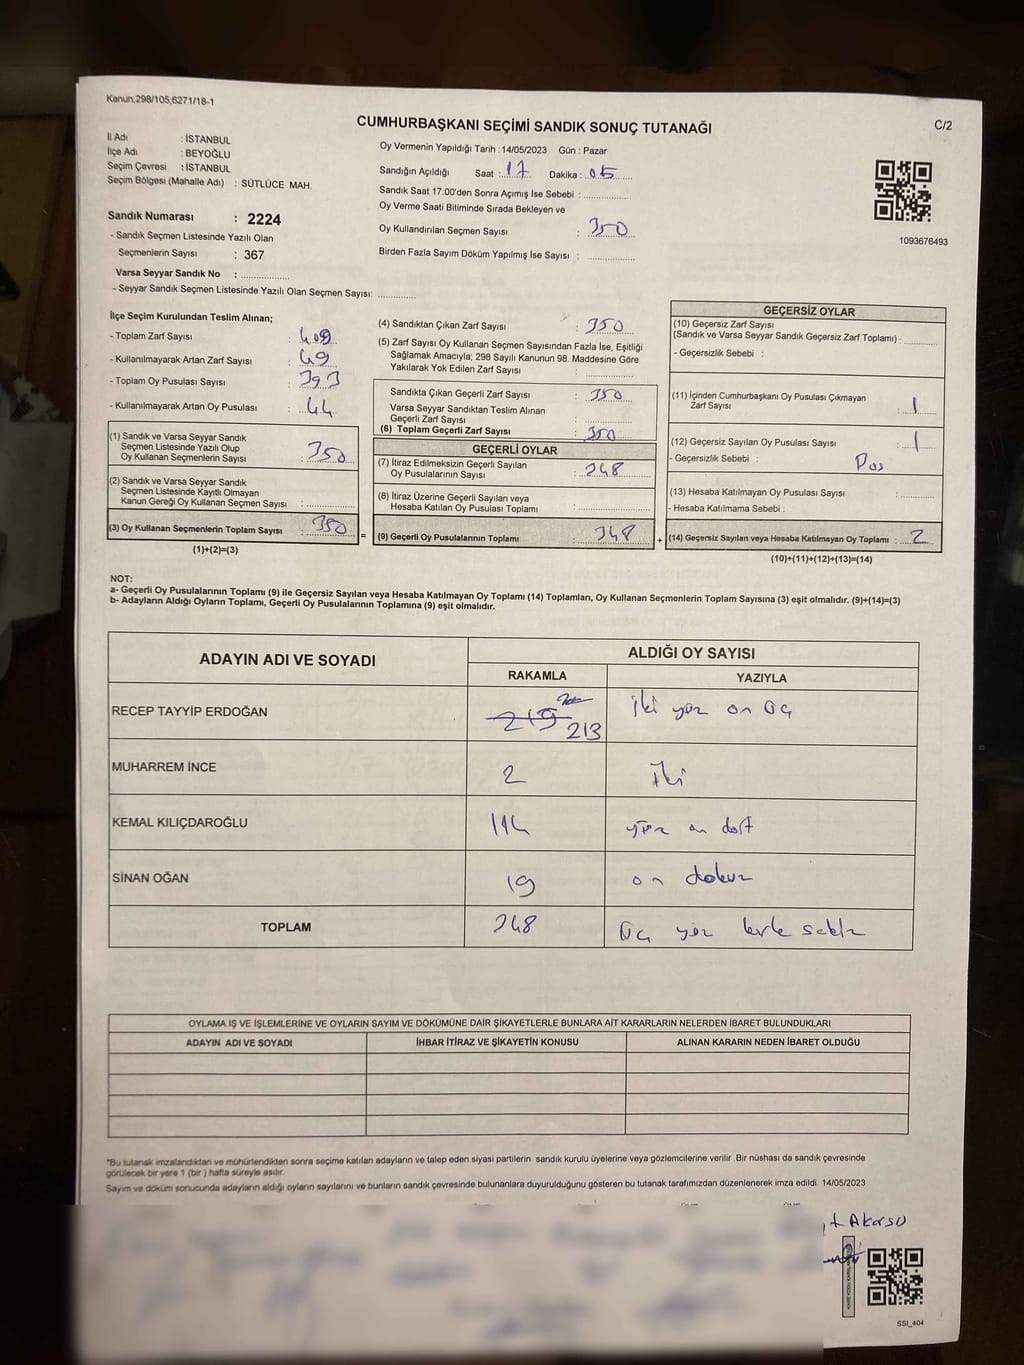 Kanun;298/105;6271/18-1
C/2
CUMHURBAŞKANI SEÇİMİ SANDIK SONUÇ TUTANAĞI
İl Adı : İSTANBUL
İlçe Adı : BEYOĞLU
Seçim Çevresi : İSTANBUL
Seçim Bölgesi (Mahalle Adı) : SÜTLÜCE MAH.
Sandık Numarası : 2224
- Sandık Seçmen Listesinde Yazılı Olan
Seçmenlerin Sayısı : 367
Varsa Seyyar Sandık No :
- Seyyar Sandık Seçmen Listesinde Yazılı Olan Seçmen Sayısı:
Oy Vermenin Yapıldığı Tarih : 14/05/2023 Gün : Pazar
Sandığın Açıldığı Saat : 17 Dakika : 05
Sandık Saat 17:00'den Sonra Açımış İse Sebebi :
Oy Verme Saati Bitiminde Sırada Bekleyen ve
Oy Kullandırılan Seçmen Sayısı : 350
Birden Fazla Sayım Döküm Yapılmış İse Sayısı :
1093676493
İlçe Seçim Kurulundan Teslim Alınan;
- Toplam Zarf Sayısı : 409
- Kullanılmayarak Artan Zarf Sayısı : 49
- Toplam Oy Pusulası Sayısı : 393
- Kullanılmayarak Artan Oy Pusulası : 44
(1) Sandık ve Varsa Seyyar Sandık
Seçmen Listesinde Yazılı Olup
Oy Kullanan Seçmenlerin Sayısı : 350
(2) Sandık ve Varsa Seyyar Sandık
Seçmen Listesinde Kayıtlı Olmayan
Kanun Gereği Oy Kullanan Seçmen Sayısı :
(3) Oy Kullanan Seçmenlerin Toplam Sayısı : 350
(1)+(2)=(3)
=
(4) Sandıktan Çıkan Zarf Sayısı : 350
(5) Zarf Sayısı Oy Kullanan Seçmen Sayısından Fazla İse, Eşitliği
Sağlamak Amacıyla; 298 Sayılı Kanunun 98. Maddesine Göre
Yakılarak Yok Edilen Zarf Sayısı :
Sandıkta Çıkan Geçerli Zarf Sayısı : 350
Varsa Seyyar Sandıktan Teslim Alınan
Geçerli Zarf Sayısı :
(6) Toplam Geçerli Zarf Sayısı : 350
GEÇERLİ OYLAR
(7) İtiraz Edilmeksizin Geçerli Sayılan
Oy Pusulalarının Sayısı : 348
(8) İtiraz Üzerine Geçerli Sayılan veya
Hesaba Katılan Oy Pusulası Toplamı :
(9) Geçerli Oy Pusulalarının Toplamı : 348
+
GEÇERSİZ OYLAR
(10) Geçersiz Zarf Sayısı
(Sandık ve Varsa Seyyar Sandık Geçersiz Zarf Toplamı) :
- Geçersizlik Sebebi :
(11) İçinden Cumhurbaşkanı Oy Pusulası Çıkmayan
Zarf Sayısı : 1
(12) Geçersiz Sayılan Oy Pusulası Sayısı : 1
- Geçersizlik Sebebi :
(13) Hesaba Katılmayan Oy Pusulası Sayısı :
- Hesaba Katılmama Sebebi :
(14) Geçersiz Sayılan veya Hesaba Katılmayan Oy Toplamı : 2
(10)+(11)+(12)+(13)=(14)
NOT:
a- Geçerli Oy Pusulalarının Toplamı (9) ile Geçersiz Sayılan veya Hesaba Katılmayan Oy Toplamı (14) Toplamları, Oy Kullanan Seçmenlerin Toplam Sayısına (3) eşit olmalıdır. (9)+(14)=(3)
b- Adayların Aldığı Oyların Toplamı, Geçerli Oy Pusulalarının Toplamına (9) eşit olmalıdır.
ADAYIN ADI VE SOYADI
ALDIĞI OY SAYISI
RAKAMLA YAZIYLA
RECEP TAYYİP ERDOĞAN 219 213 İki yüz on üç
MUHARREM İNCE 2 İki
KEMAL KILIÇDAROĞLU 114 yüz on dört
SİNAN OĞAN 19 on dokuz
TOPLAM 348 Üç yüz kırk sekiz
OYLAMA İŞ VE İŞLEMLERİNE VE OYLARIN SAYIM VE DÖKÜMÜNE DAİR ŞİKAYETLERLE BUNLARA AİT KARARLARIN NELERDEN İBARET BULUNDUKLARI
ADAYIN ADI VE SOYADI İHBAR İTİRAZ VE ŞİKAYETİN KONUSU ALINAN KARARIN NEDEN İBARET OLDUĞU
*Bu tutanak imzalandıktan ve mühürlendikten sonra seçime katılan adayların ve talep eden siyasi partilerin sandık kurulu üyelerine veya gözlemcilerine verilir .Bir nüshası da sandık çevresinde
görülecek bir yere 1 (bir ) hafta süreyle asılır.
Sayım ve döküm sonucunda adayların aldığı oyların sayılarını ve bunların sandık çevresinde bulunanlara duyurulduğunu gösteren bu tutanak tarafımızdan düzenlenerek imza edildi. 14/05/2023
Akarsu
SSI_404